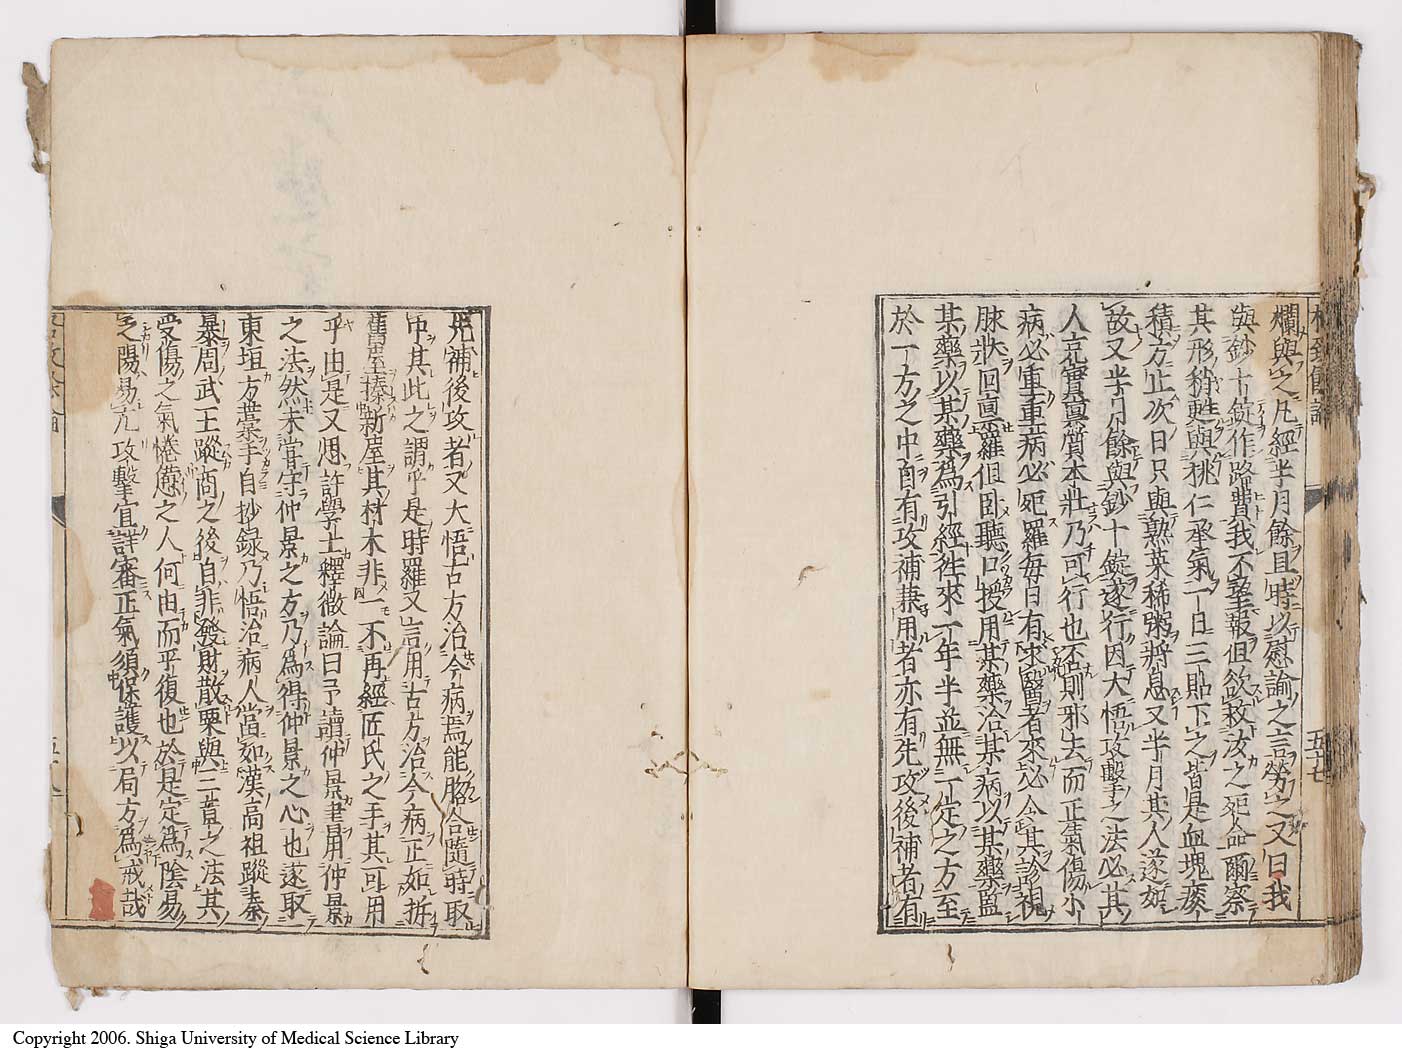 格致餘論
五十七
爛與之凡經半月餘且時以慰諭之言勞之又曰我
與鈔十錠作路費我不望報但欲救汝之死命爾察
其形稍甦與桃仁承氣一日三貼下之皆是血塊痰
積方止次日只與熟菜稀粥將息又半月其人遂如
故又半月餘與鈔十錠遂行因大悟攻擊之法必其
人充實稟質本壯乃可行也否則邪去而正氣傷小
病必重重病必死羅每日有求醫者來必令其診視
脉狀回稟羅但卧聽口授用某藥治某病以某藥監
某藥以某藥為引經徃來一年半並無一定之方至
於一方之中自有攻補兼用者亦有先攻後補者有
先補後攻者又大悟古方治今病焉能脗合隨時取
中其此之謂乎是時羅又言用古方治今病正如拆
舊屋揍新屋其材木非一不再經匠氏之手其可用
乎由是又思許學士釋微論曰予讀仲景書用仲景
之法然未嘗守仲景之方乃為得仲景之心也遂取
東垣方藁手自抄録乃悟治病人當如漢高祖蹤秦
暴周武王蹤商之後自非發財散粟與三章之法其
受傷之氣倦憊之人何由而平復也於是定為陰易
乏陽易亢攻擊宜詳審正氣須保護以局方為戒哉
Copyright 2006. Shiga University of Medical Science Library